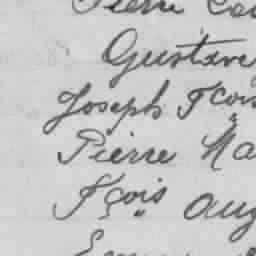 Pierre
Gustave
Joseph Fçois
Pierre Na
Fçois Aug